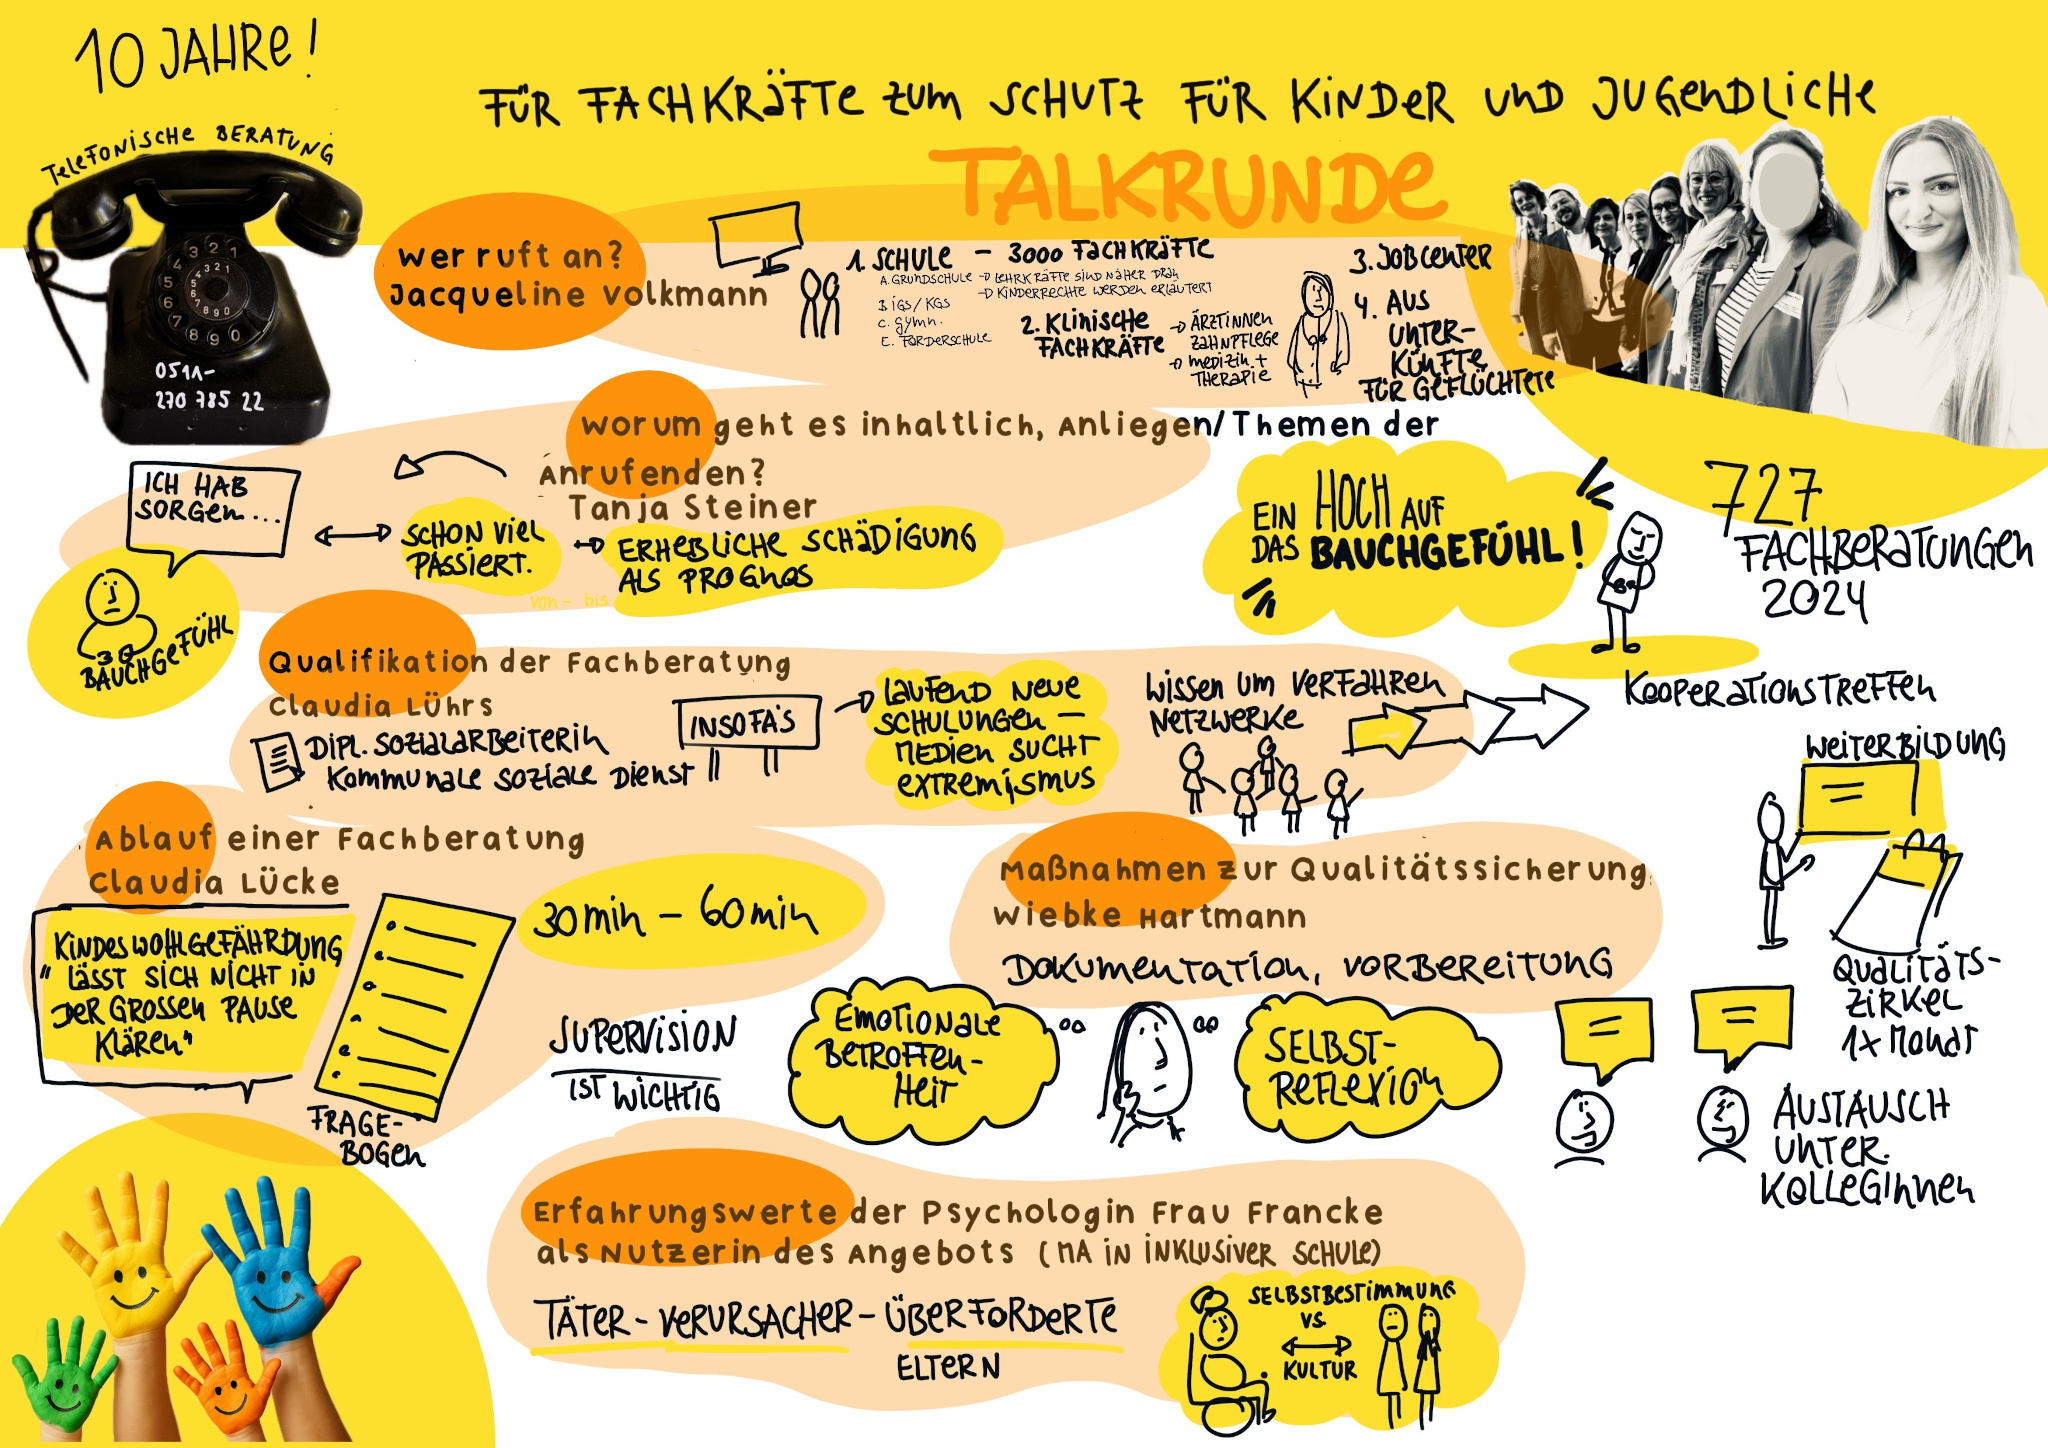 10 JAHRE!
TELEFONISCHE BERATUNG
0511-
270 785 22
FÜR FACHKRÄFTE ZUM SCHUTZ FÜR KINDER UND JUGENDLICHE
TALKRUNDE
Wer ruft an?
Jacqueline Volkmann
1. SCHULE – 3000 FACHKRÄFTE
A. GRUNDSCHULE → LEHRKRÄFTE SIND NÄHER DRAN
→ KINDERRECHTE WERDEN ERLÄUTERT
B IGS/KGS
C. GYMN.
E. FÖRDERSCHULE
2. KLINISCHE
FACHKRÄFTE
→ ÄRZTINNEN
ZAHNPFLEGE
→ MEDIZIN +
THERAPIE
3. JOBCENTER
4. AUS
UNTER-
KÜNFTE
FÜR GEFLÜCHTETE
Worum geht es inhaltlich, Anliegen/Themen der
Anrufenden?
Tanja Steiner
ICH HAB
SORGEN...
BAUCHGEFÜHL
SCHON VIEL
PASSIERT.
von - bis
→ ERHEBLICHE SCHÄDIGUNG
ALS PROGNOS
EIN HOCH AUF
DAS BAUCHGEFÜHL!
727
FACHBERATUNGEN
2024
Qualifikation der Fachberatung
Claudia Lührs
DIPL. SOZIALARBEITERIN
KOMMUNALE SOZIALE DIENST
INSOFA'S
LAUFEND NEUE
SCHULUNGEN –
MEDIEN SUCHT
EXTREMISMUS
WISSEN UM VERFAHREN
NETZWERKE
KOOPERATIONSTREFFEN
WEITERBILDUNG
QUALITÄTS-
ZIRKEL
1x MONAT
AUSTAUSCH
UNTER
KOLLEGINNEN
Ablauf einer Fachberatung
Claudia Lücke
KINDESWOHLGEFÄHRDUNG
" LÄSST SICH NICHT IN
DER GROSSEN PAUSE
KLÄREN"
FRAGE-
BOGEN
30 min – 60 min
Maßnahmen zur Qualitätssicherung
Wiebke Hartmann
DOKUMENTATION, VORBEREITUNG
SUPERVISION
IST WICHTIG
EMOTIONALE
BETROFFEN-
HEIT
SELBST-
REFLEXION
Erfahrungswerte der Psychologin Frau Francke
als Nutzerin des Angebots (MA IN INKLUSIVER SCHULE)
TÄTER - VERURSACHER - ÜBERFORDERTE
ELTERN
SELBSTBESTIMMUNG
VS
KULTUR